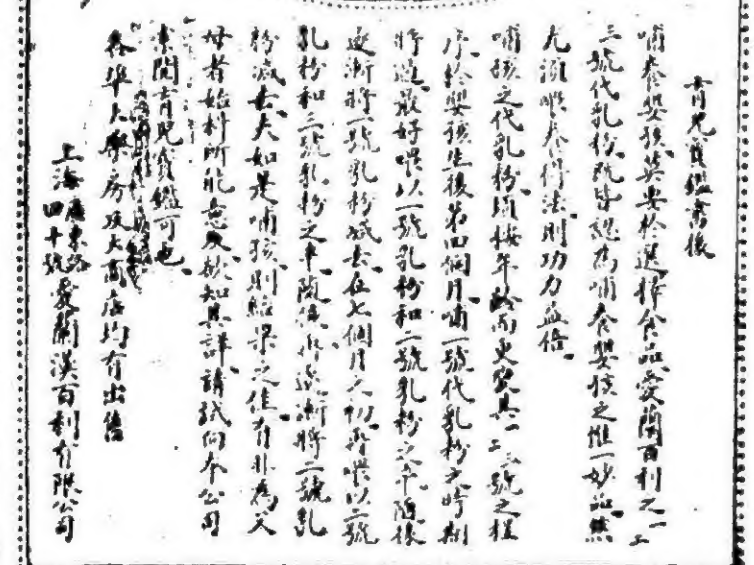 育兒寶鑑書後
哺養嬰孩莫要於選擇食品愛蘭百利之一二
三號代乳粉既皆認為哺養嬰孩之惟一妙品然
尤須喂養得法則功力益倍
哺孩之代乳粉須按年齡而更變其一二三號之程
序於嬰孩生後第四個月哺一號代乳粉之時期
將過最好喂以一號乳粉和二號乳粉之半隨後
逐漸將一號乳粉減去在七個月之初再喂以二號
乳粉和三號乳粉之半隨後亦逐漸將二號乳
粉減去夫如是哺孩則結果之佳有非為父
母者始料所能意及欲知其詳請試向本公司
索閱育兒寶鑑可也
各埠大藥房及大商店均有出售
上海廣東路
四十號
愛蘭漢百利有限公司